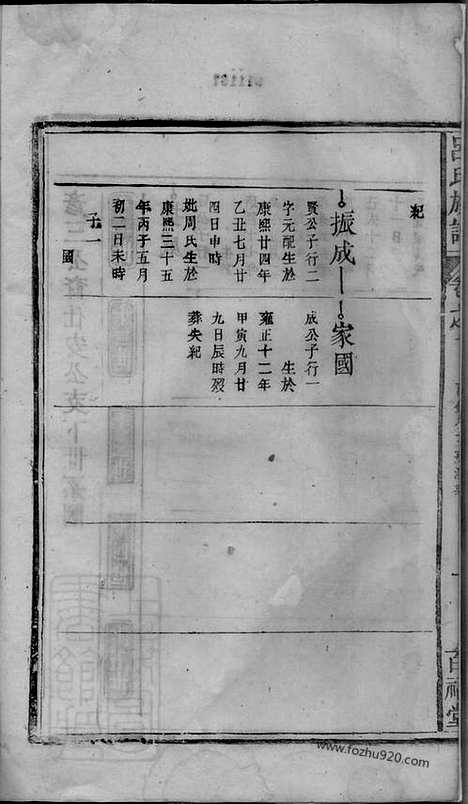 紀
振成
賢公子行二
字元配生於
康熙廿四年
乙丑七月廿
四日申時
妣周氏生於
康熙三十五
年丙子五月
初二日未時
子一
國
家國
成公子行一
生於
雍正十二年
甲寅九月廿
九日辰時歿
葬失紀
呂氏族譜
www.fozhu920.com